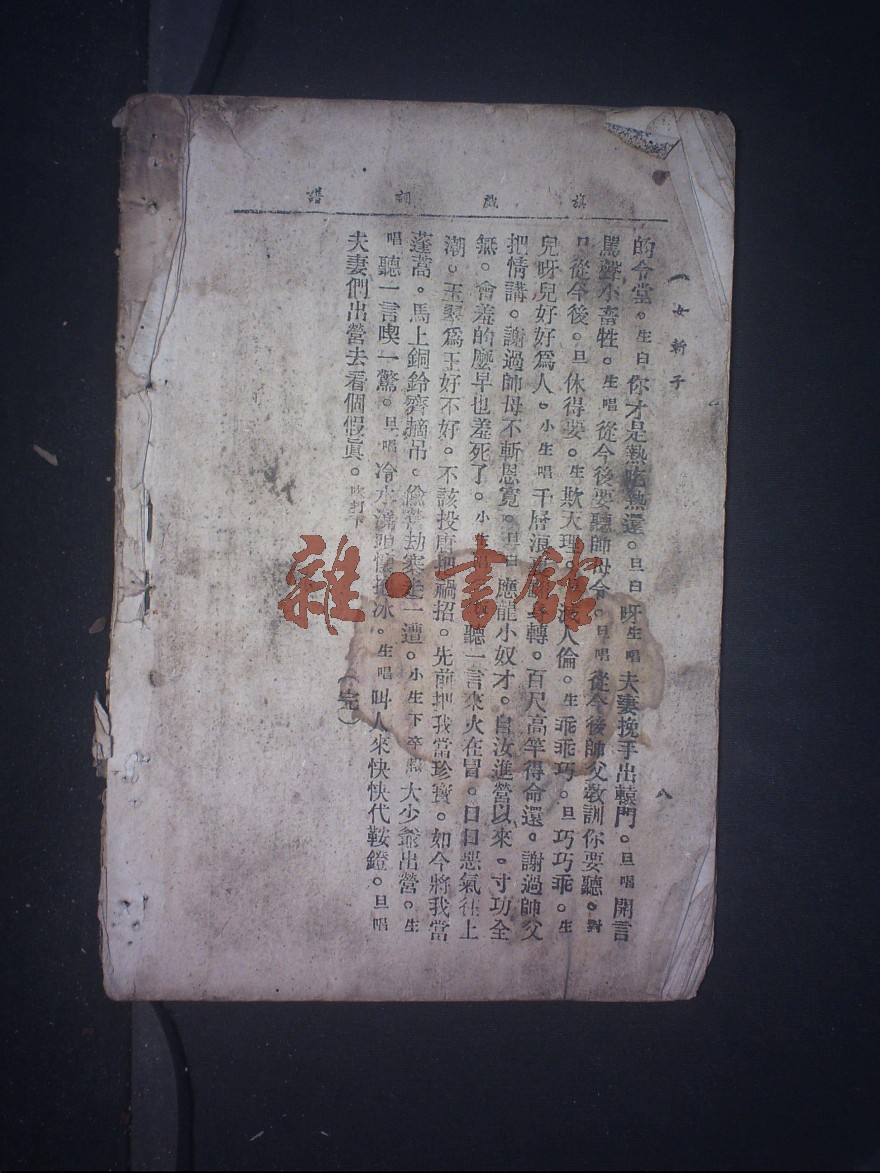 戲詞譜
女斬子
八
的令堂。生白你才是熱吃熱還。旦白呀生唱夫妻挽手出轅門。旦唱開言
罵聲小畜牲。生唱從今後要聽師母令。旦唱從今後師父教訓你要聽。對
口從今後。旦休得要。生欺大理。人倫。生乖乖巧。旦巧巧乖。生
兒呀兒好好爲人。小生唱千層浪轉。百尺高竿得命還。謝過師父
把情講。謝過師母不斬恩寬。旦白應龍小奴才。自汝進營以來。寸功全
無。會羞的麼早也羞死了。小生唱聽一言來火在冒。口口惡氣往上
潮。玉翠爲王好不好。不該投唐招。先前把我當珍寶。如今將我當
蓬蒿。馬上銅鈴齊摘吊。偷營劫寨走一遭。小生下卒照大少爺出營。生
唱聽一言喫一驚。旦唱冷水冰。生唱叫人來快快代鞍鐙。旦唱
夫妻們出營去看個假眞。吹打下
(完)
雜·書館